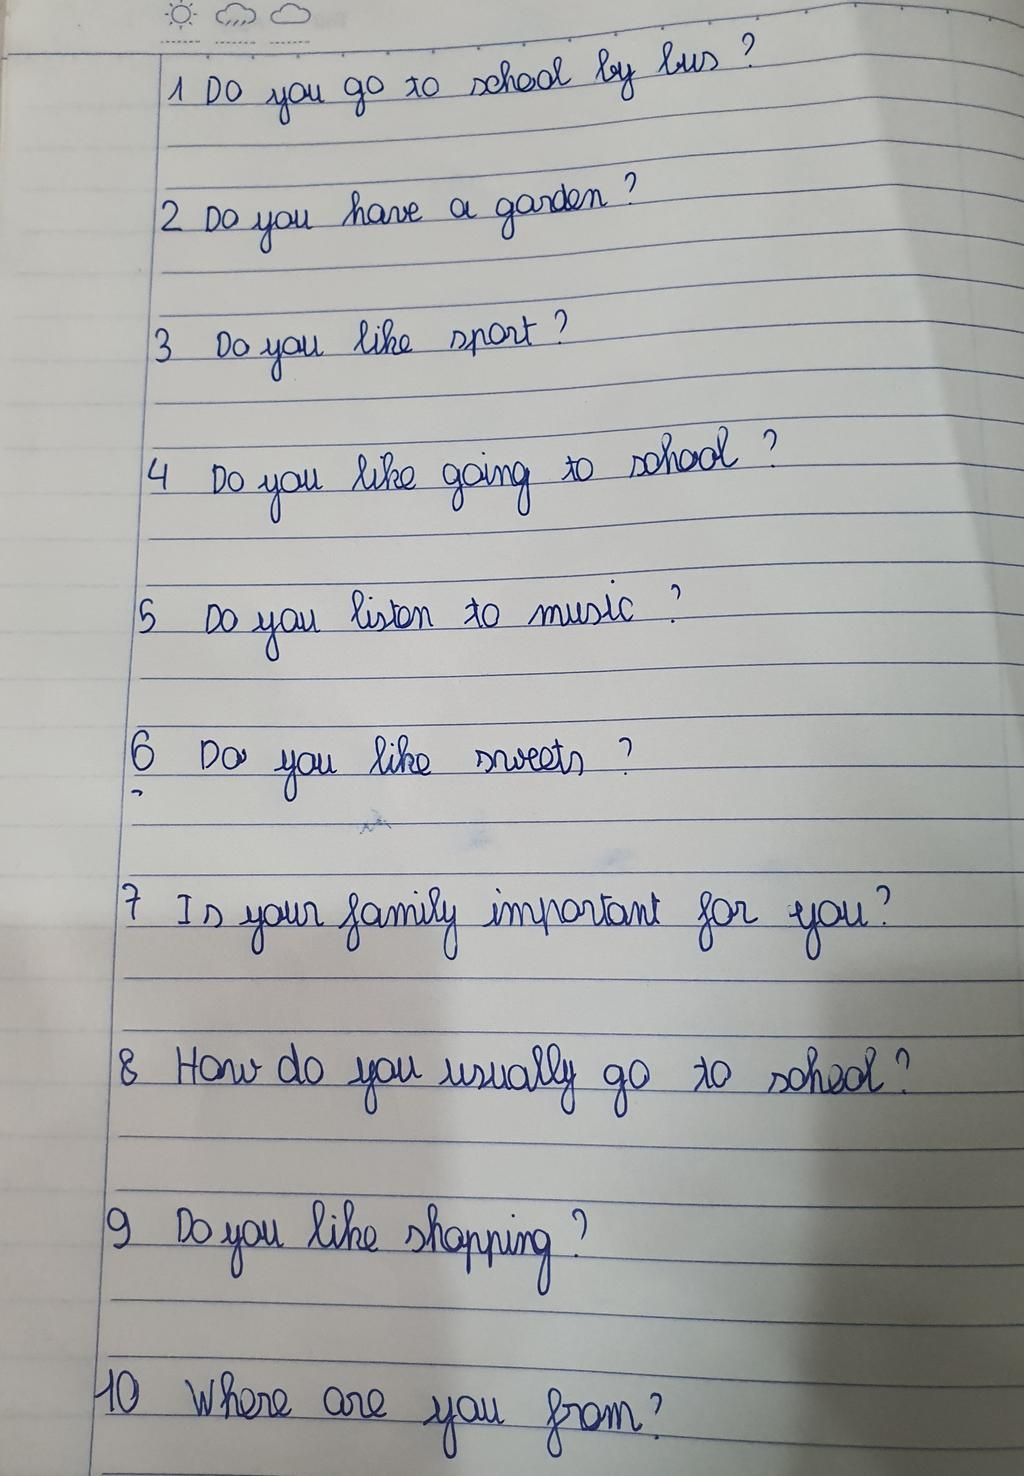 1 Do you go to school by bus ?
2 Do you have a garden ?
3 Do you like sport ?
4 Do you like going to school ?
5 Do you liston to music ?
6 Do you like sweets ?
7 Is your family important for you ?
8 How do you usually go to school ?
9 Do you like shopping ?
10 Where are you from ?